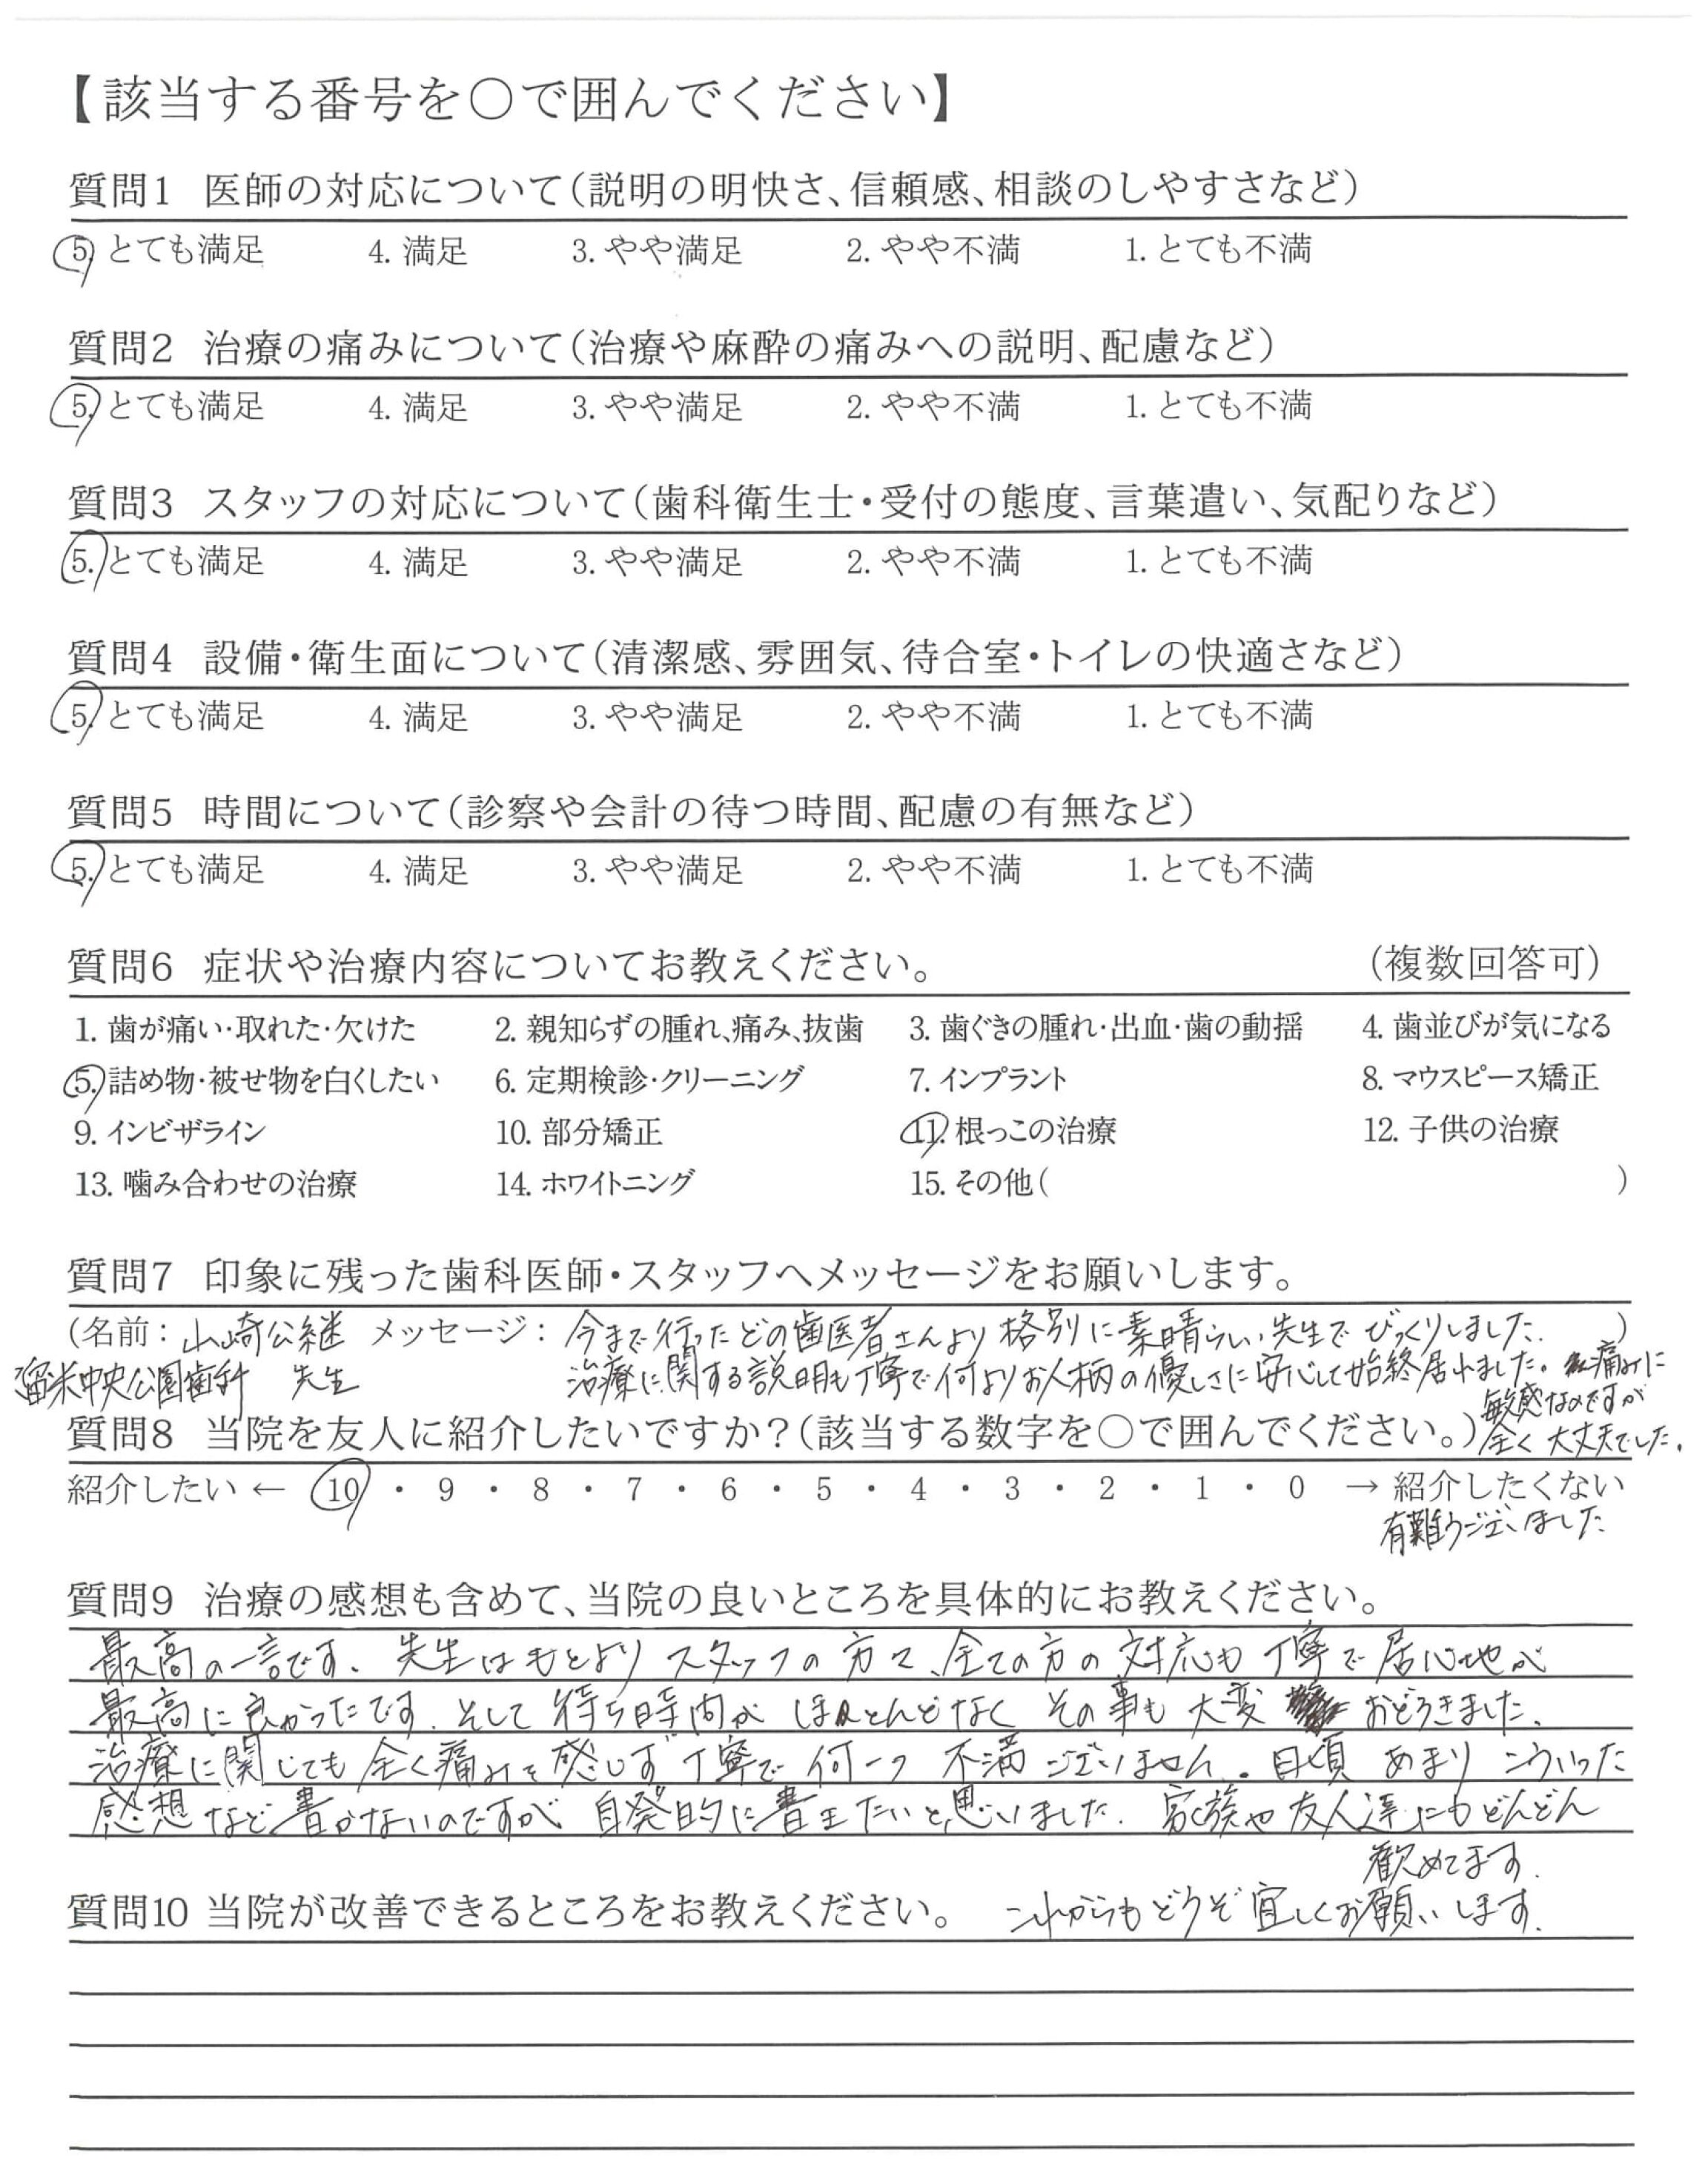 【該当する番号を○で囲んでください】
質問1 医師の対応について(説明の明快さ、信頼感、相談のしやすさなど)
5. とても満足 4. 満足 3. やや満足 2. やや不満 1. とても不満
質問2 治療の痛みについて(治療や麻酔の痛みへの説明、配慮など)
5. とても満足 4. 満足 3. やや満足 2. やや不満 1. とても不満
質問3 スタッフの対応について(歯科衛生士・受付の態度、言葉遣い、気配りなど)
5. とても満足 4. 満足 3. やや満足 2. やや不満 1. とても不満
質問4 設備・衛生面について(清潔感、雰囲気、待合室・トイレの快適さなど)
5. とても満足 4. 満足 3. やや満足 2. やや不満 1. とても不満
質問5 時間について(診察や会計の待つ時間、配慮の有無など)
5. とても満足 4. 満足 3. やや満足 2. やや不満 1. とても不満
質問6 症状や治療内容についてお教えください。 (複数回答可)
1. 歯が痛い・取れた・欠けた 2. 親知らずの腫れ、痛み、抜歯 3. 歯ぐきの腫れ・出血・歯の動揺 4. 歯並びが気になる
5. 詰め物・被せ物を白くしたい 6. 定期検診・クリーニング 7. インプラント 8. マウスピース矯正
9. インビザライン 10. 部分矯正 11. 根っこの治療 12. 子供の治療
13. 噛み合わせの治療 14. ホワイトニング 15. その他( )
質問7 印象に残った歯科医師・スタッフへメッセージをお願いします。
(名前: 山崎公継 メッセージ: 今まで行ったどの歯医者さんより格別に素晴らしい先生でびっくりしました. )
留米中央公園歯科 先生 治療に関する説明も丁寧で何よりお人柄の優しさに安心して始終居れました。痛みに
敏感なのですが
質問8 当院を友人に紹介したいですか?(該当する数字を○で囲んでください。) 全く大丈夫でした.
紹介したい ← 10 ・ 9 ・ 8 ・ 7 ・ 6 ・ 5 ・ 4 ・ 3 ・ 2 ・ 1 ・ 0 → 紹介したくない
有難うございました
質問9 治療の感想も含めて、当院の良いところを具体的にお教えください。
最高の一言です. 先生はもとよりスタッフの方々、全ての方の対応も丁寧で居心地が
最高に良かったです. そして待ち時間がほとんどなくその事も大変おどろきました.
治療に関しても全く痛みを感じず丁寧で何一つ不満ございません. 日頃あまりこういった
感想など書かないのですが自発的に書きたいと思いました. 家族や友人達にもどんどん
歓めてます.
質問10 当院が改善できるところをお教えください。 これからもどうぞ宜しくお願いします.